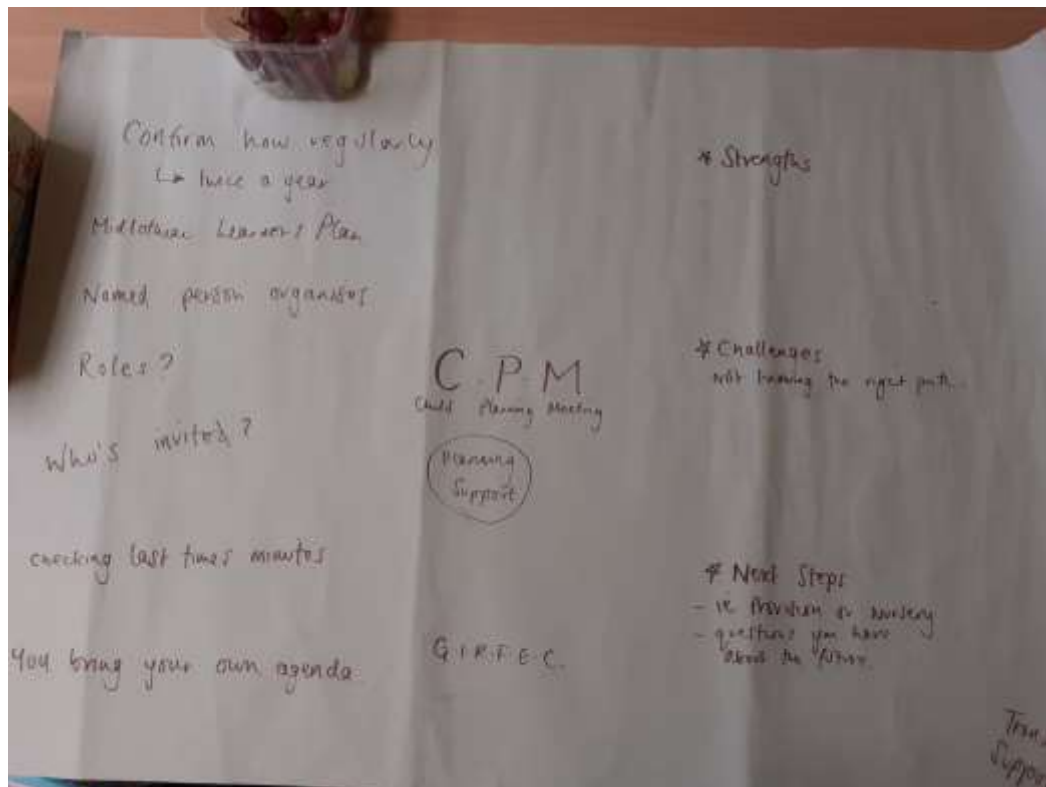 Confirm how regularly
↳ twice a year
Midlothian Learners Plan
Named person organises
Roles?
Who's invited?
checking last times minutes
You bring your own agenda
C.P.M
Child Planning Meeting
Planning
Support
G.I.R.F.E.C.
* Strengths
* Challenges
Not knowing the right path.
* Next Steps
- ie Provision or Nursery
- questions you have
about the future.
Suppor